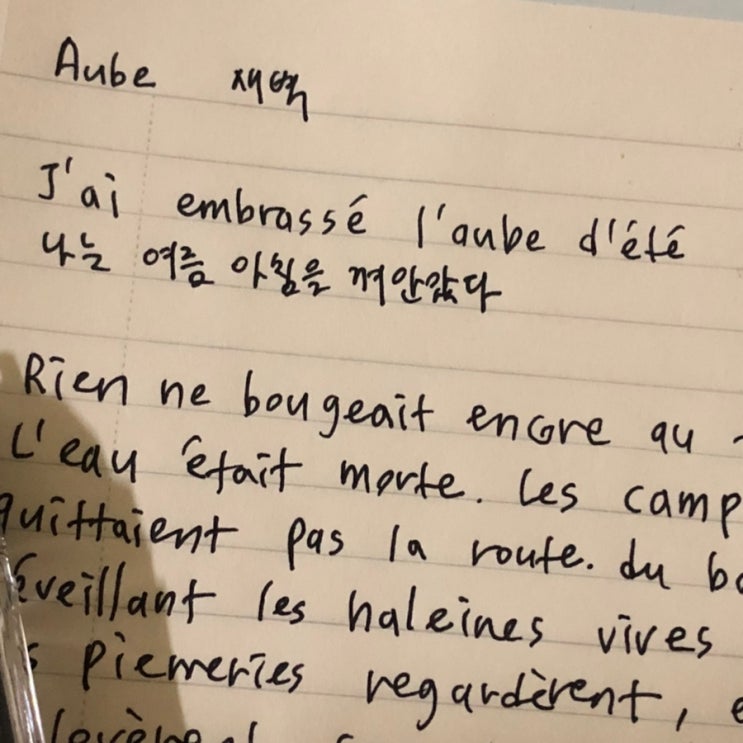 Aube 새벽
J'ai embrassé l'aube d'été
나는 여름 아침을 껴안았다
Rien ne bougeait encore au
L'eau était morte. Les camp
quittaient pas la route. du bo
éveillant les haleines vives
s pierreries regardèrent, e
levèrent